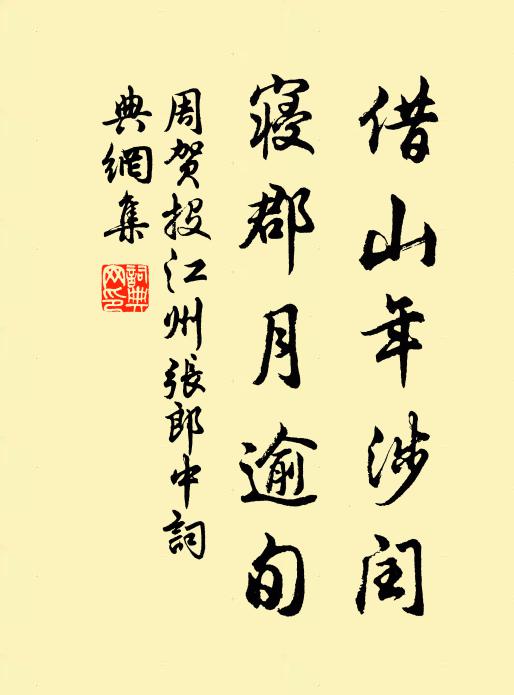 借山年涉閏
寝郡月逾旬
周贺投江州張郎中詞
典網集
詞典网印